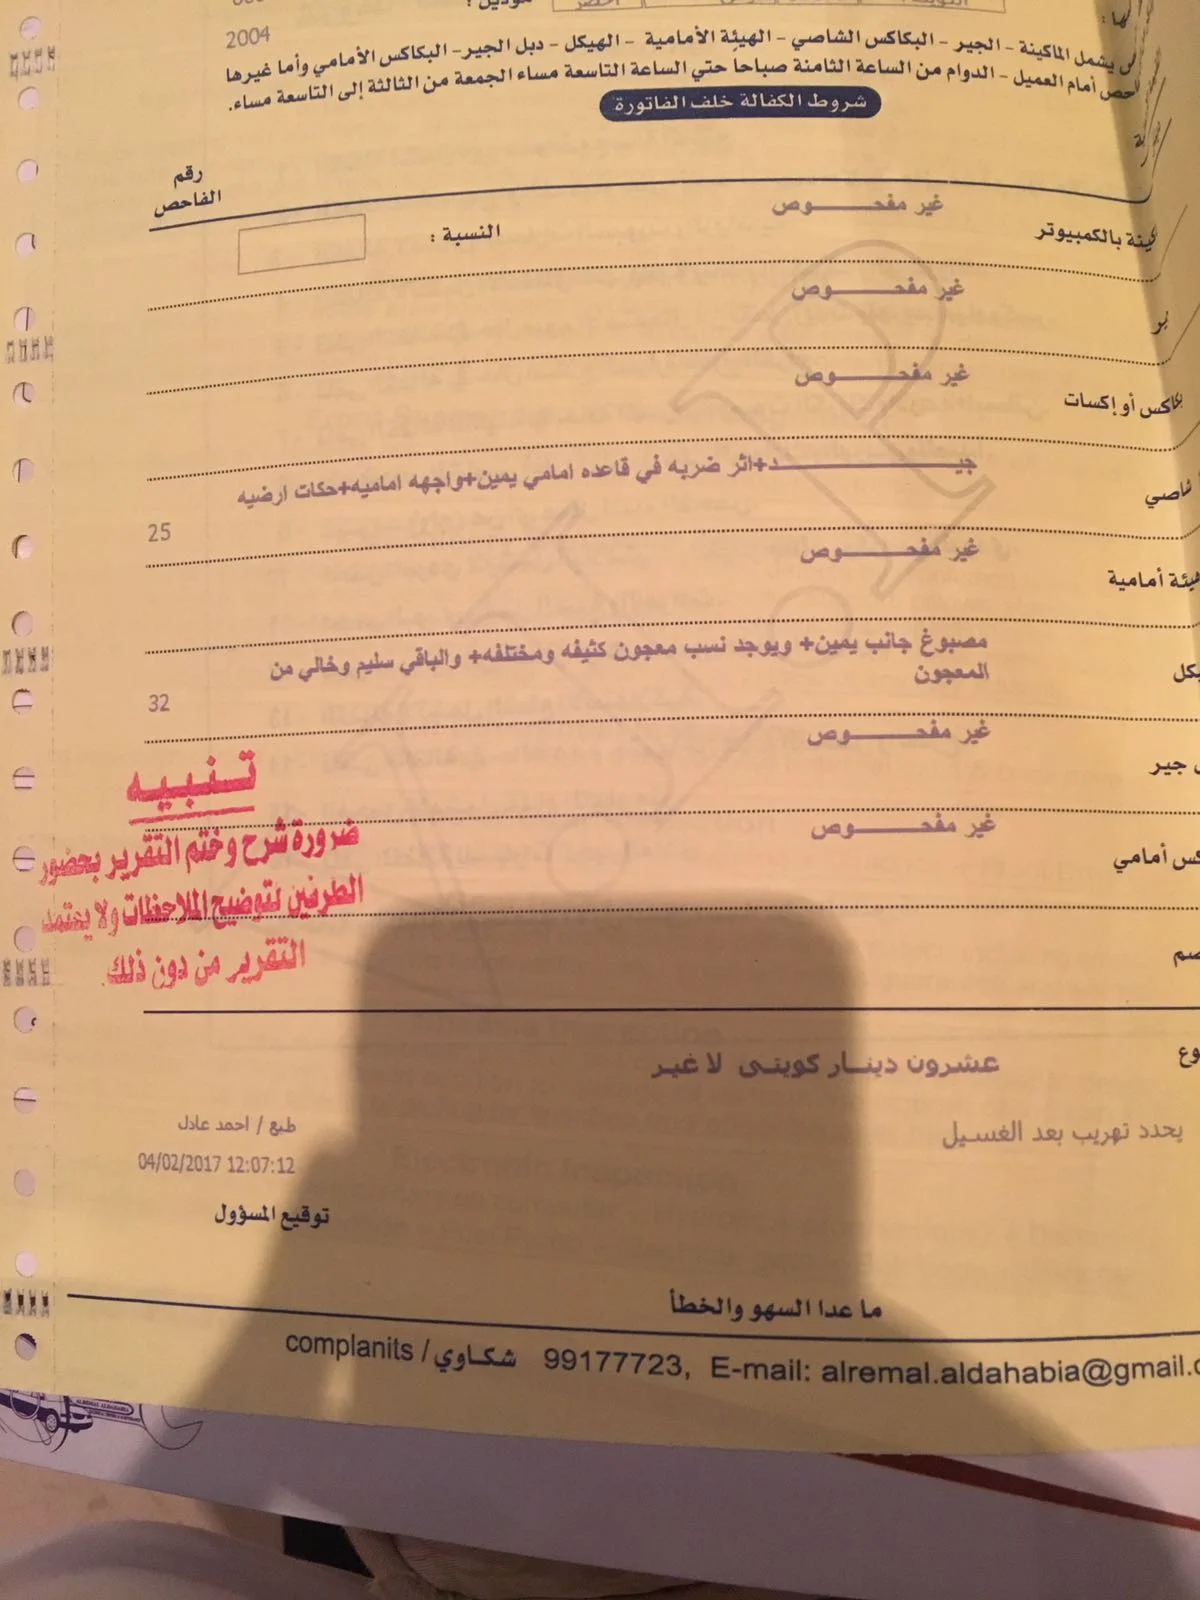 2004
يشمل الماكينة - الجير - البكاكس الشاصي - الهيئة الأمامية - الهيكل - دبل الجير - البكاكس الأمامي وأما غيرها
أمام العميل - الدوام من الساعة الثامنة صباحاً حتي الساعة التاسعة مساء الجمعة من الثالثة إلى التاسعة مساء.
شروط الكفالة خلف الفاتورة
رقم
الفاحص
غير مفحـــــوص
بالكمبيوتر
النسبة :
غير مفحـــــوص
غير مفحـــــوص
أو إكسات
شاصي
جيـــــــــــد+اثر ضربه في قاعده امامي يمين+واجهه اماميه+حكات ارضيه
25
غير مفحـــــوص
أمامية
مصبوغ جانب يمين+ ويوجد نسب معجون كثيفه ومختلفه+ والباقي سليم وخالي من
المعجون
32
غير مفحـــــوص
جير
غير مفحـــــوص
أمامي
تـنـبيـه
ضرورة شرح وختم التقرير بحضور
الطرفين لتوضيح الملاحظات ولا يعتمد
التقرير من دون ذلك.
عشرون دينــار كويتى لا غيـر
يحدد تهريب بعد الغسيل
طبع / احمد عادل
04/02/2017 12:07:12
توقيع المسؤول
ما عدا السهو والخطأ
complanits / شكـاوي 99177723, E-mail: alremal.aldahabia@gmail.
ALREMAL ALDAHABIA